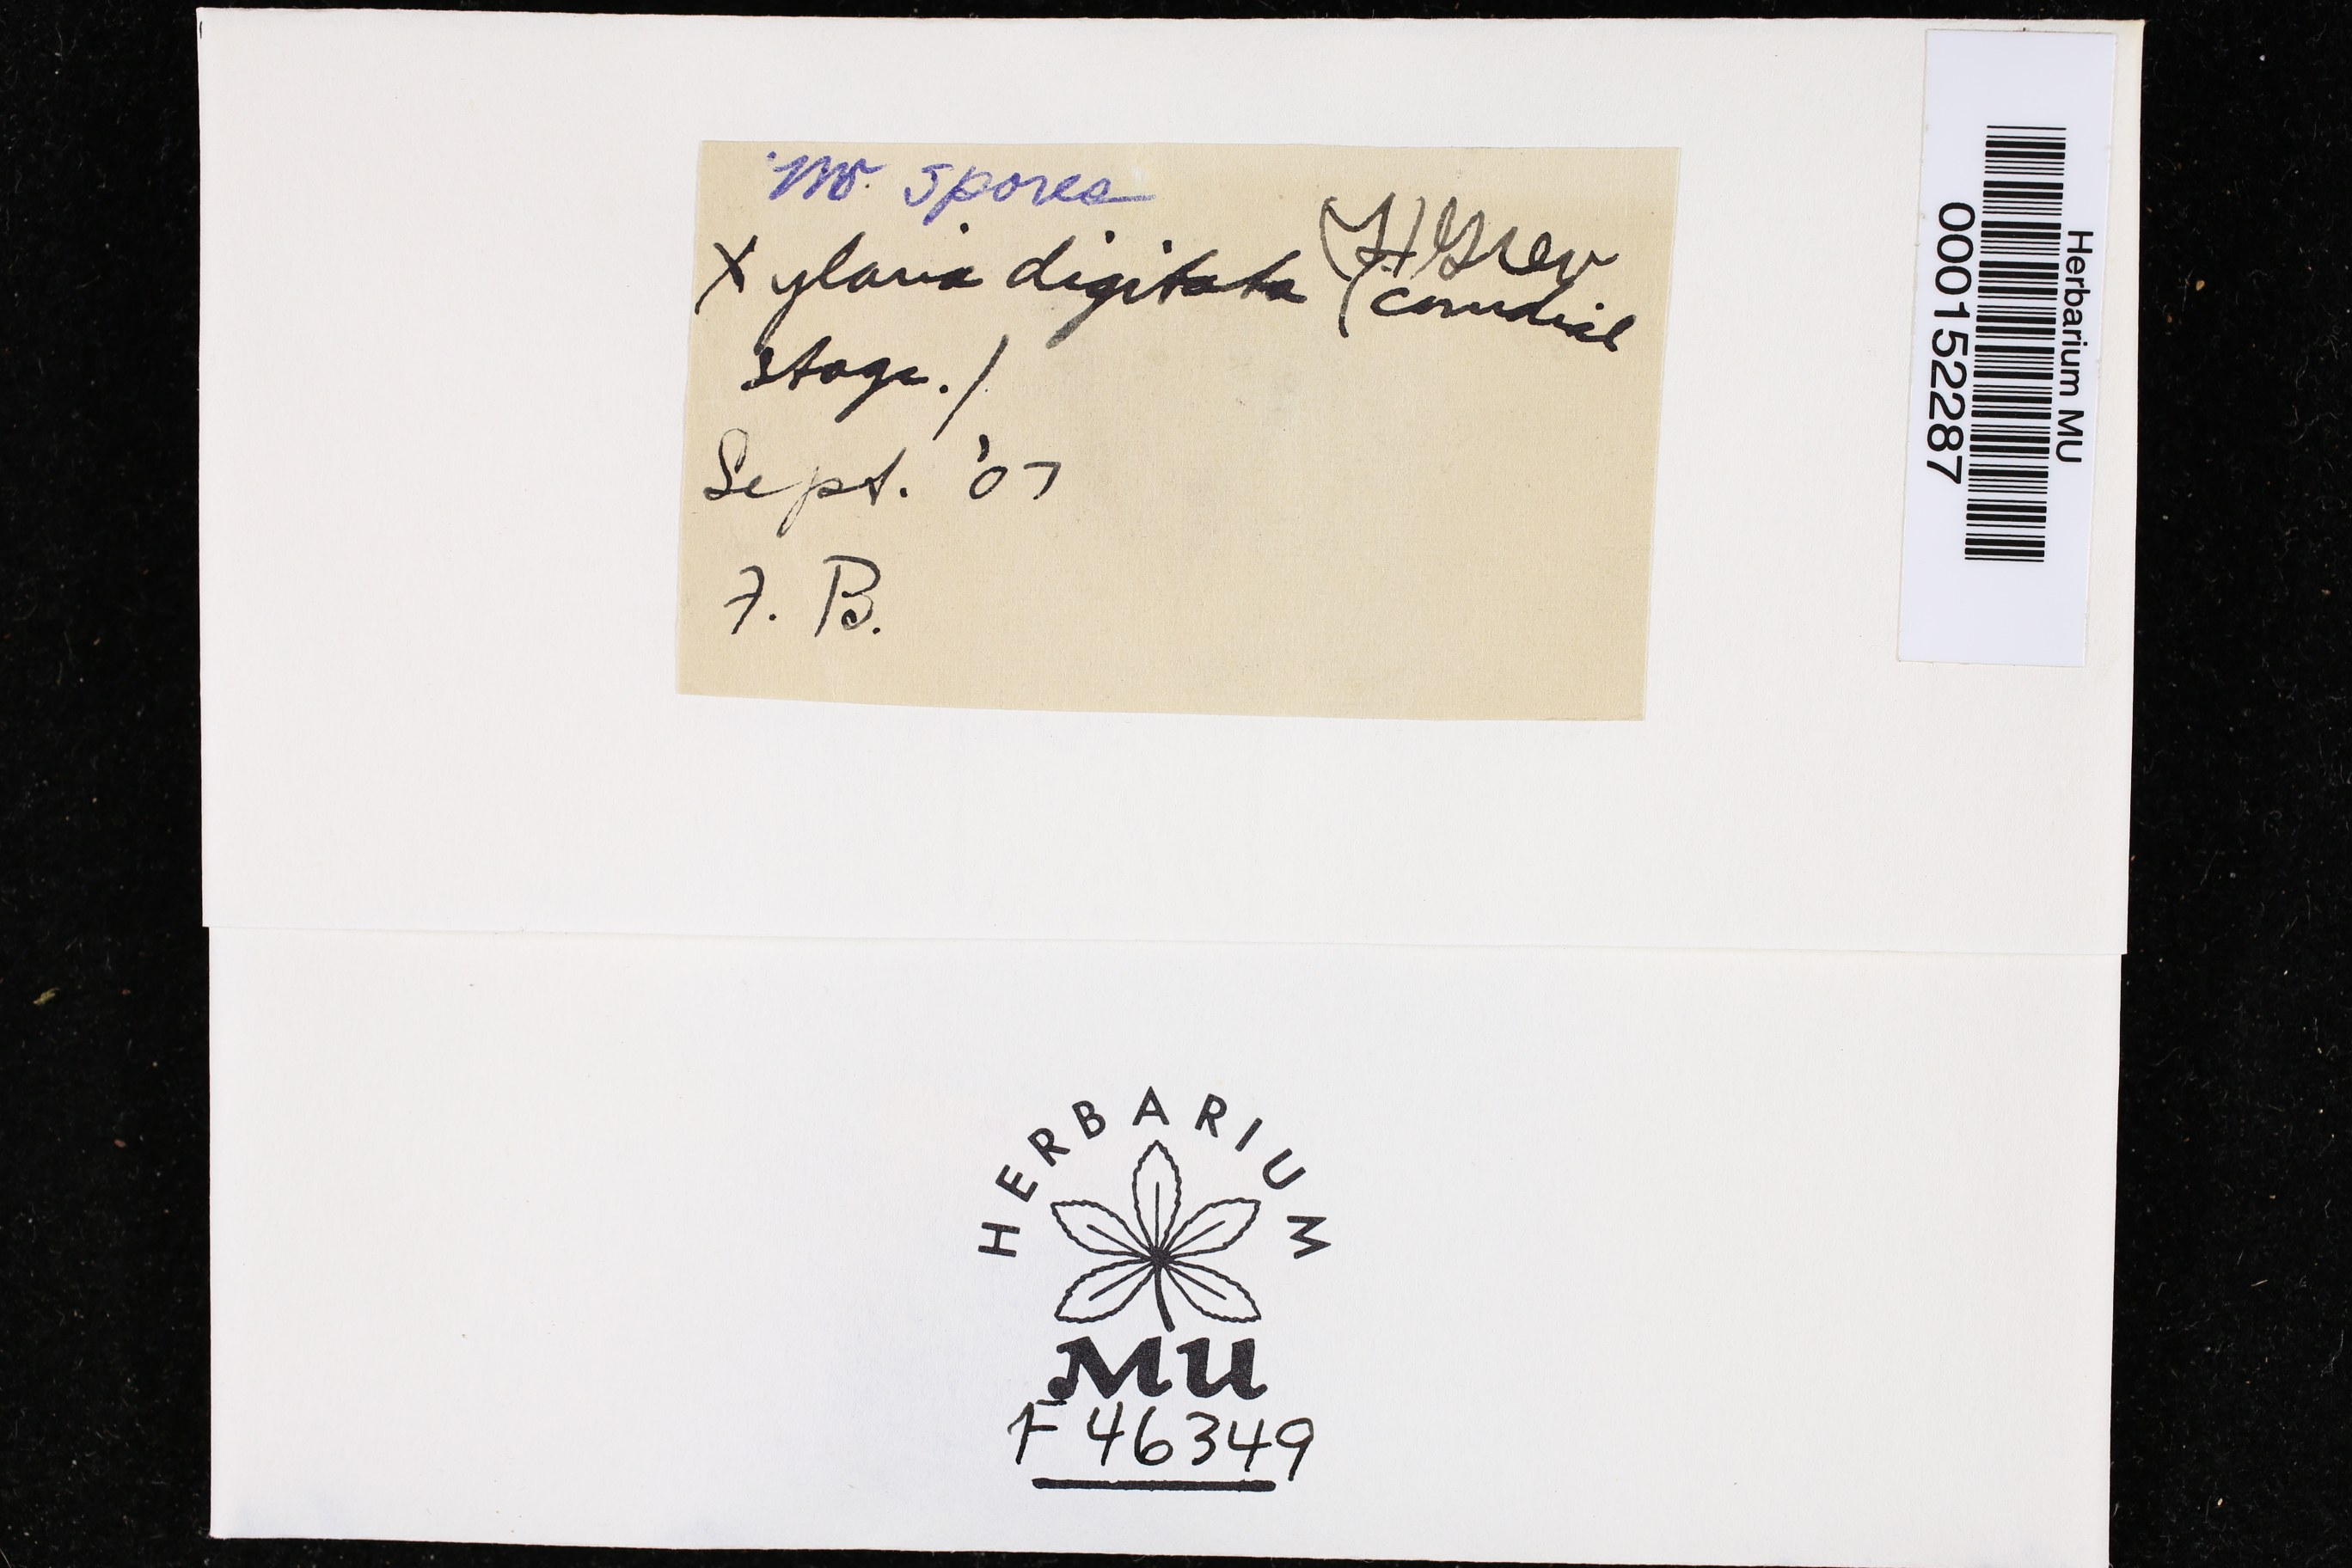 No spores
Xylaria digitata (L) Grev
(conidial
stage.)
Sept. '07
F. B.
Herbarium MU
000152287
HERBARIUM
MU
F 46349